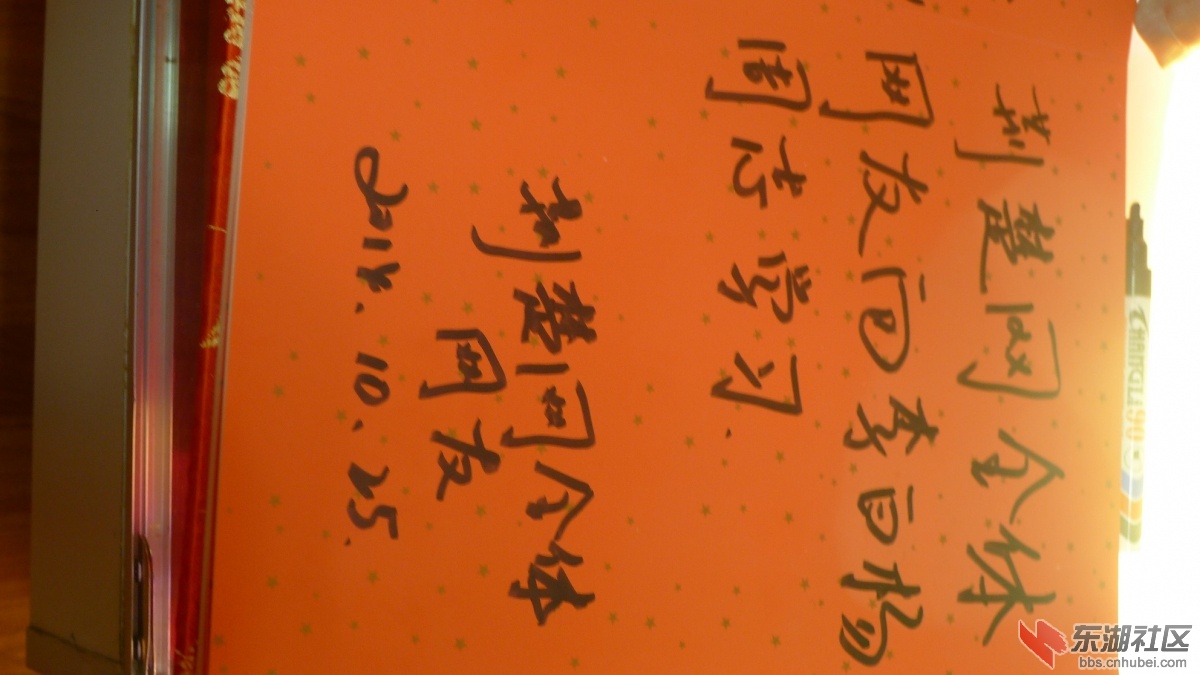 荆楚网全体
网友向李白杨
周志学习.
荆楚网全体
网友
2014.10.25.
CHANGLI 90
东湖社区
bbs.cnhubei.com